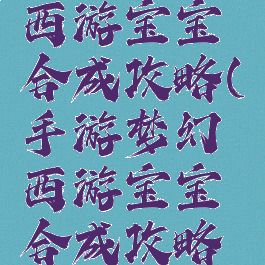 西游宝宝
合成攻略(
手游梦幻
西游宝宝
合成攻略